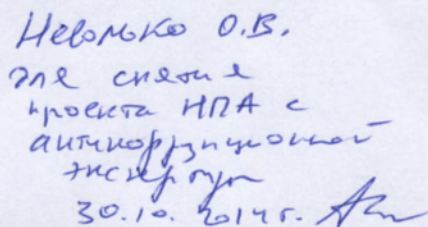 Неволько О.В.
для снятия
проекта НПА с
антикоррупционной
экспертизы
30.10.2014г.